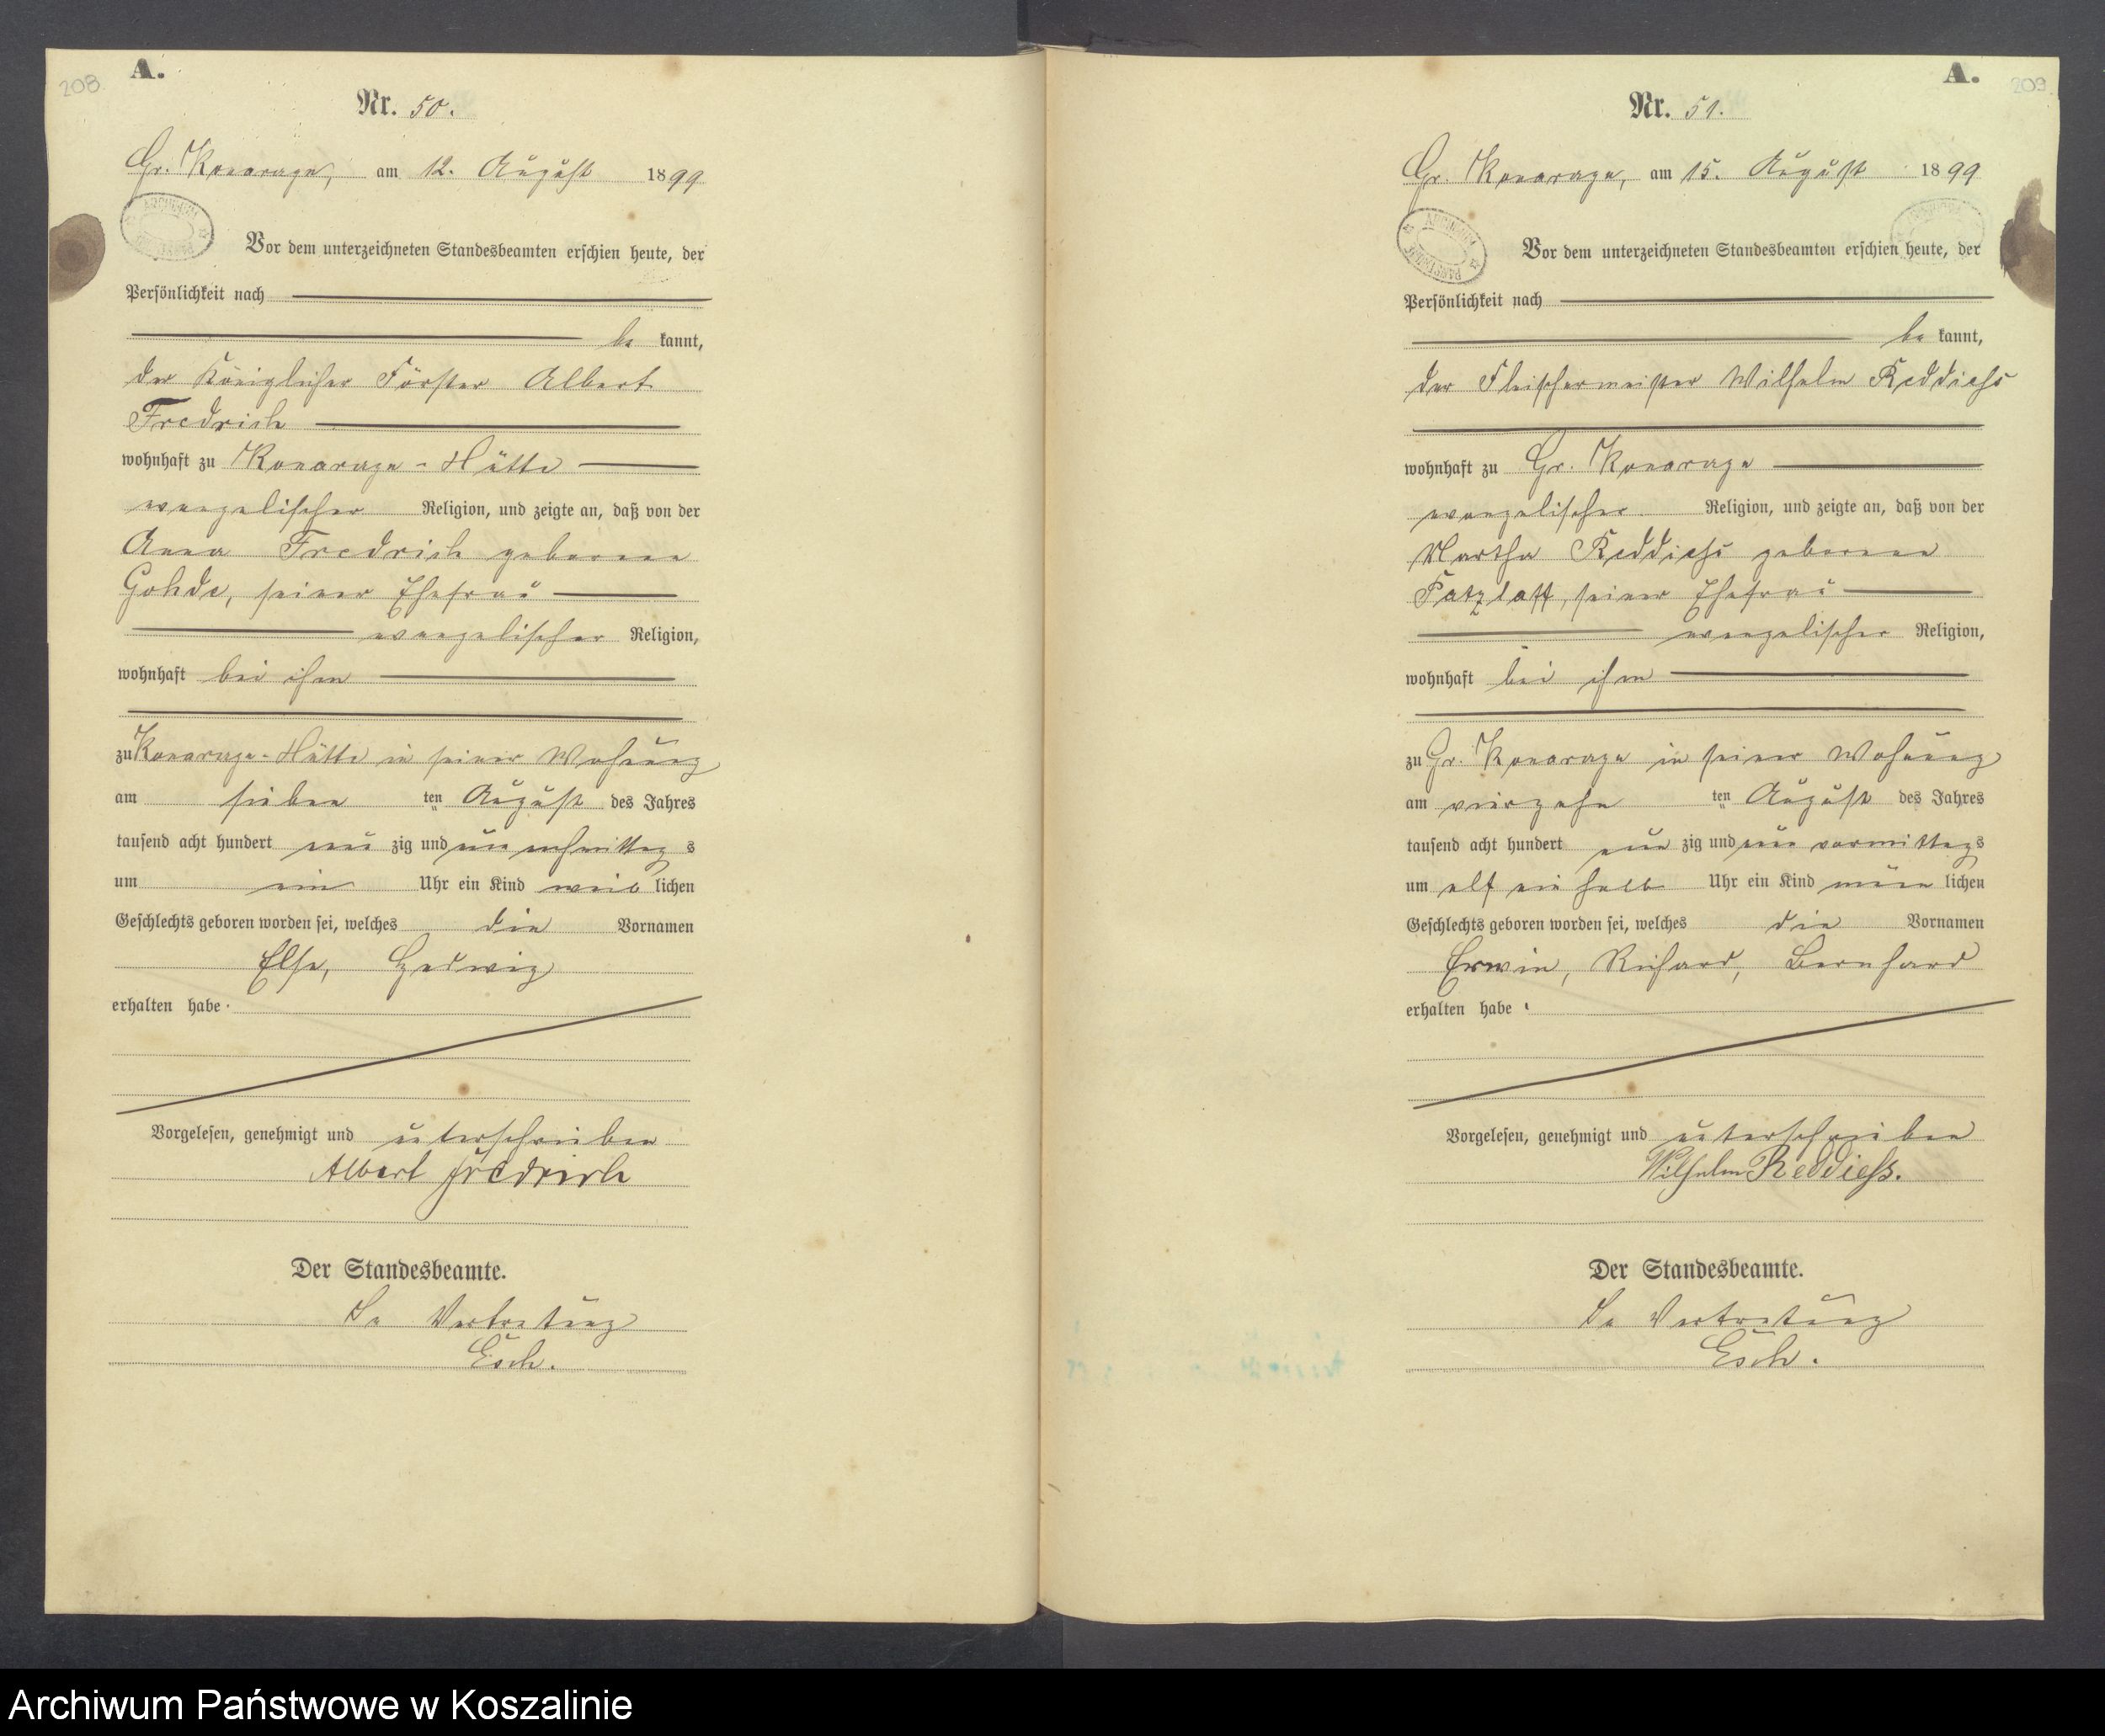 208
A.
Nr. 50.
Gr. Konarage, am 12. August 1899
Vor dem unterzeichneten Standesbeamten erschien heute, der
Persönlichkeit nach
be kannt,
der Königlicher Förster Albert
Fredrich
wohnhaft zu Konarage-Hütte
evangelischer Religion, und zeigte an, daß von der
Anna Fredrich geborene
Gohde, seiner Ehefrau
evangelischer Religion,
wohnhaft bei ihm
zu Konarage-Hütte in seiner Wohnung
am sieben ten August des Jahres
tausend acht hundert neun zig und neun nachmittag s
um ein Uhr ein Kind weib lichen
Geschlechts geboren worden sei, welches die Vornamen
Else, Hedwig
erhalten habe.
Vorgelesen, genehmigt und unterschrieben
Albert Fredrich
Der Standesbeamte.
In Vertretung
Esch.
A.
209
Nr. 51.
Gr. Konarage, am 15. August 1899
Vor dem unterzeichneten Standesbeamten erschien heute, der
Persönlichkeit nach
be kannt,
der Fleischermeister Wilhelm Reddiehs
wohnhaft zu Gr. Konarage
evangelischer Religion, und zeigte an, daß von der
Martha Reddiehs geborene
Patzlaff, seiner Ehefrau
evangelischer Religion,
wohnhaft bei ihm
zu Gr. Konarage in seiner Wohnung
am vierzehn ten August des Jahres
tausend acht hundert neun zig und neun vormittags
um elf ein halb Uhr ein Kind männ lichen
Geschlechts geboren worden sei, welches die Vornamen
Erwin, Richard, Bernhard
erhalten habe.
Vorgelesen, genehmigt und unterschrieben
Wilhelm Reddiehs.
Der Standesbeamte.
In Vertretung
Esch.
Archiwum Państwowe w Koszalinie